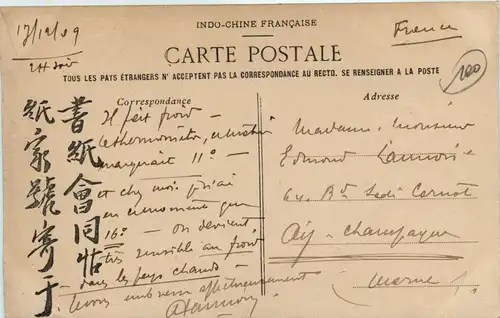 17/12/09
INDO-CHINE FRANÇAISE
France
CARTE POSTALE
100
TOUS LES PAYS ÉTRANGERS N' ACCEPTENT PAS LA CORRESPONDANCE AU RECTO. SE RENSEIGNER A LA POSTE
Correspondance
Il fait froid –
le thermomètre, ce matin
marquait 11° –
et chez moi j'ai
en ce moment que
16° – On devient
très sensible au froid
dans les pays chauds –
embrasse affectueusement
書紙會同帖
紙家號寄于
Adresse
Madame, Monsieur
Edmond
64 Bd Sadi Carnot
Aÿ – Champagne
Marne